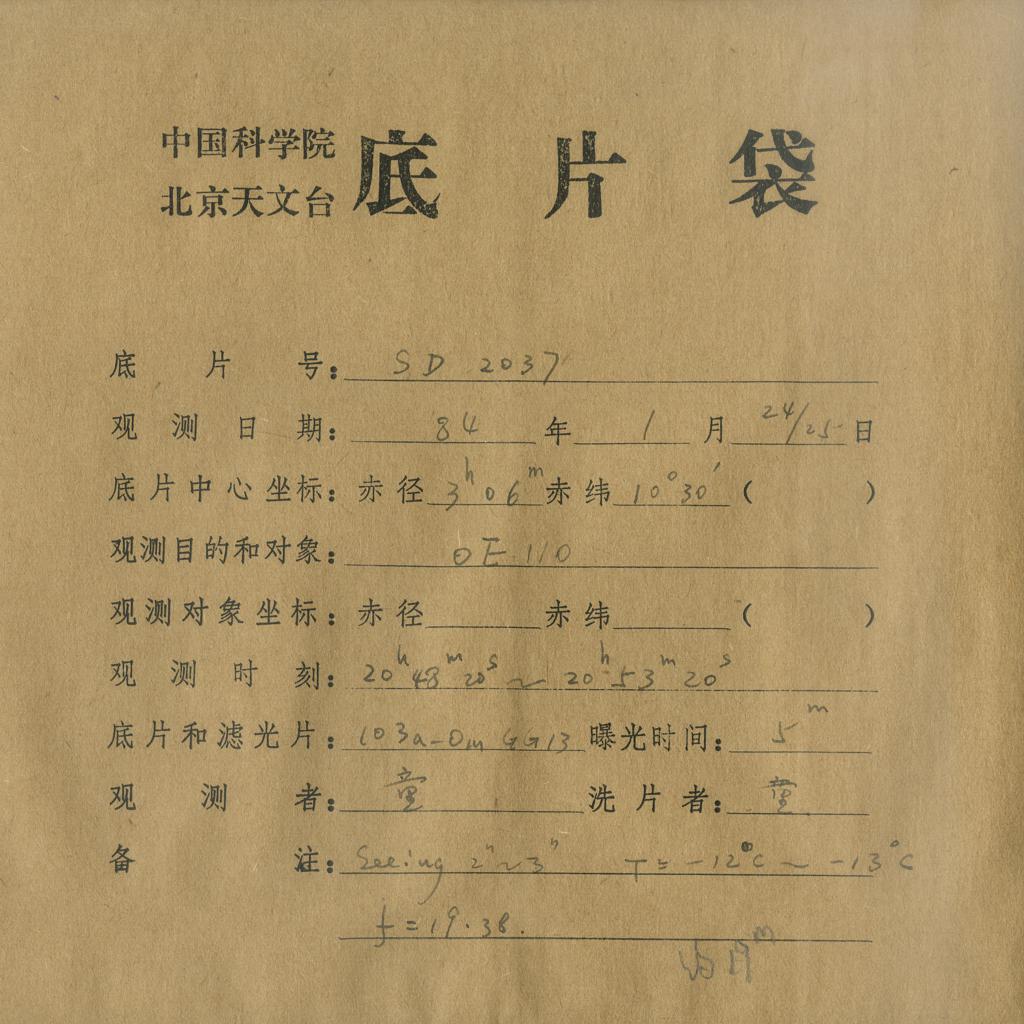 中国科学院
北京天文台
底片袋
底片号: SD 2037
观测日期: 84 年 1 月 24/25 日
底片中心坐标: 赤径 3h 06m 赤纬 10° 30′ ( )
观测目的和对象: OE 110
观测对象坐标: 赤径 赤纬 ( )
观测时刻: 20h 48m 20s ~ 20h 53m 20s
底片和滤光片: 103a-O GG13 曝光时间: 5m
观测者: 童 洗片者: 童
备注: Seeing 2″~3″ T = -12°C ~ -13°C
f = 19.38.
19m